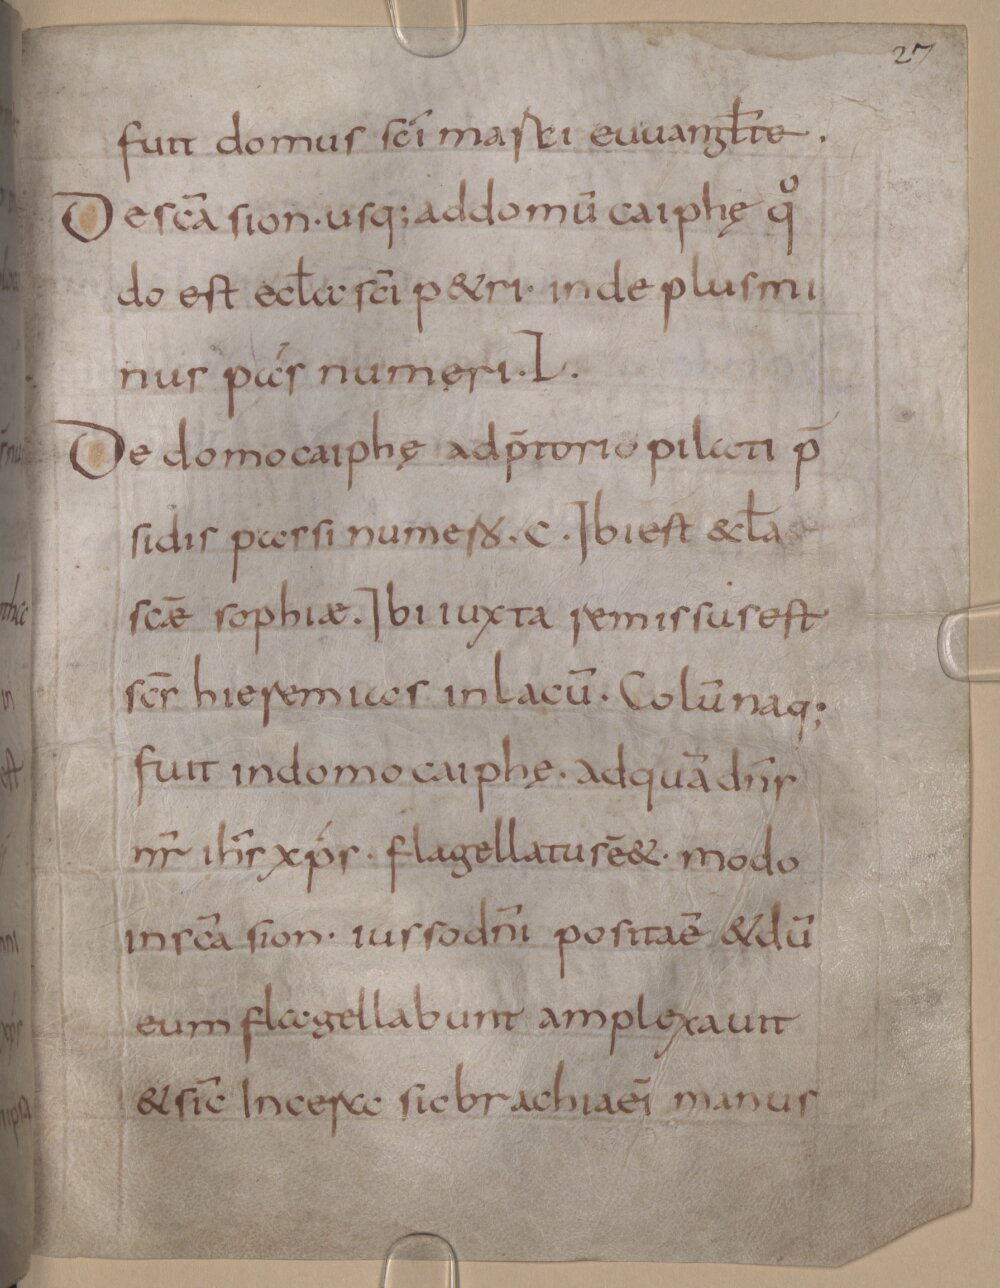 27
fuit domus scī marci euuanglte.
De scā sion. usq; addomū caiphę qͦ
do est eclạ scī p&ri. inde plusmi
nus pas numeri. L.
De domo caiphę adp̄torio pilati p̄
sidis passi numeꝝ. C. Ibi est &cła
scǣ sophiæ. Ibi iuxta remissus est
scs̄ hieremias inlacū. Colūnaq;
fuit indomo caiphę. adquā dn̄s
nr̄ ihs̄ xps̄. flagellatus ē &. modo
inscā sion. iussodnī posita ē &dū
eum flagellabunt amplexauit
&sic̄ Incera sic brachia eī manus